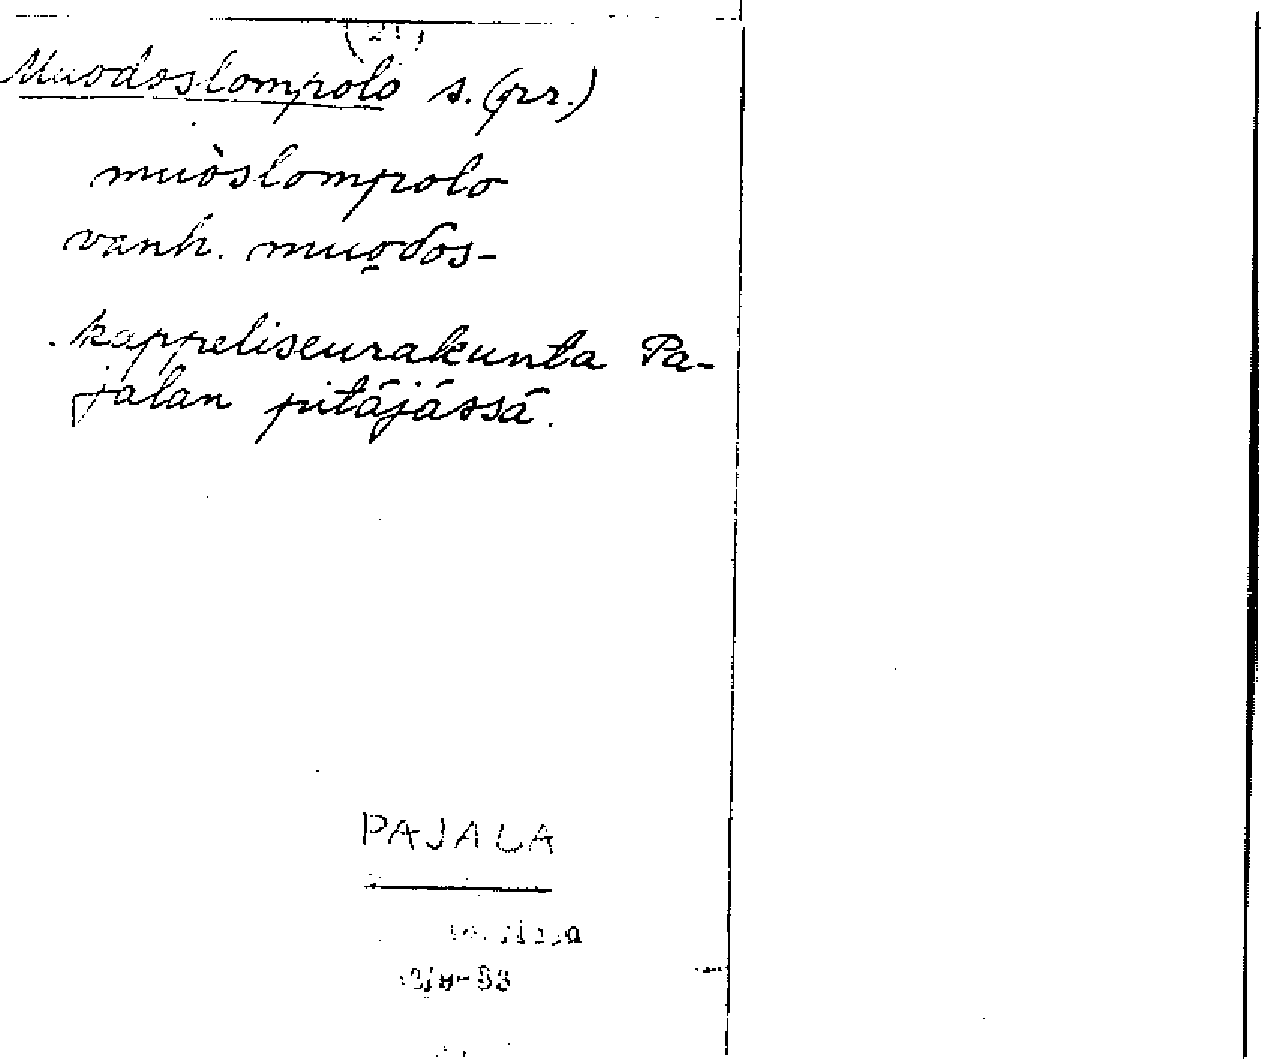 Muodoslompolo s. (pr.)
muòslompolo
vanh. muo̮dos-
kappeliseurakunta Pa-
jalan pitäjässä.
PAJALA